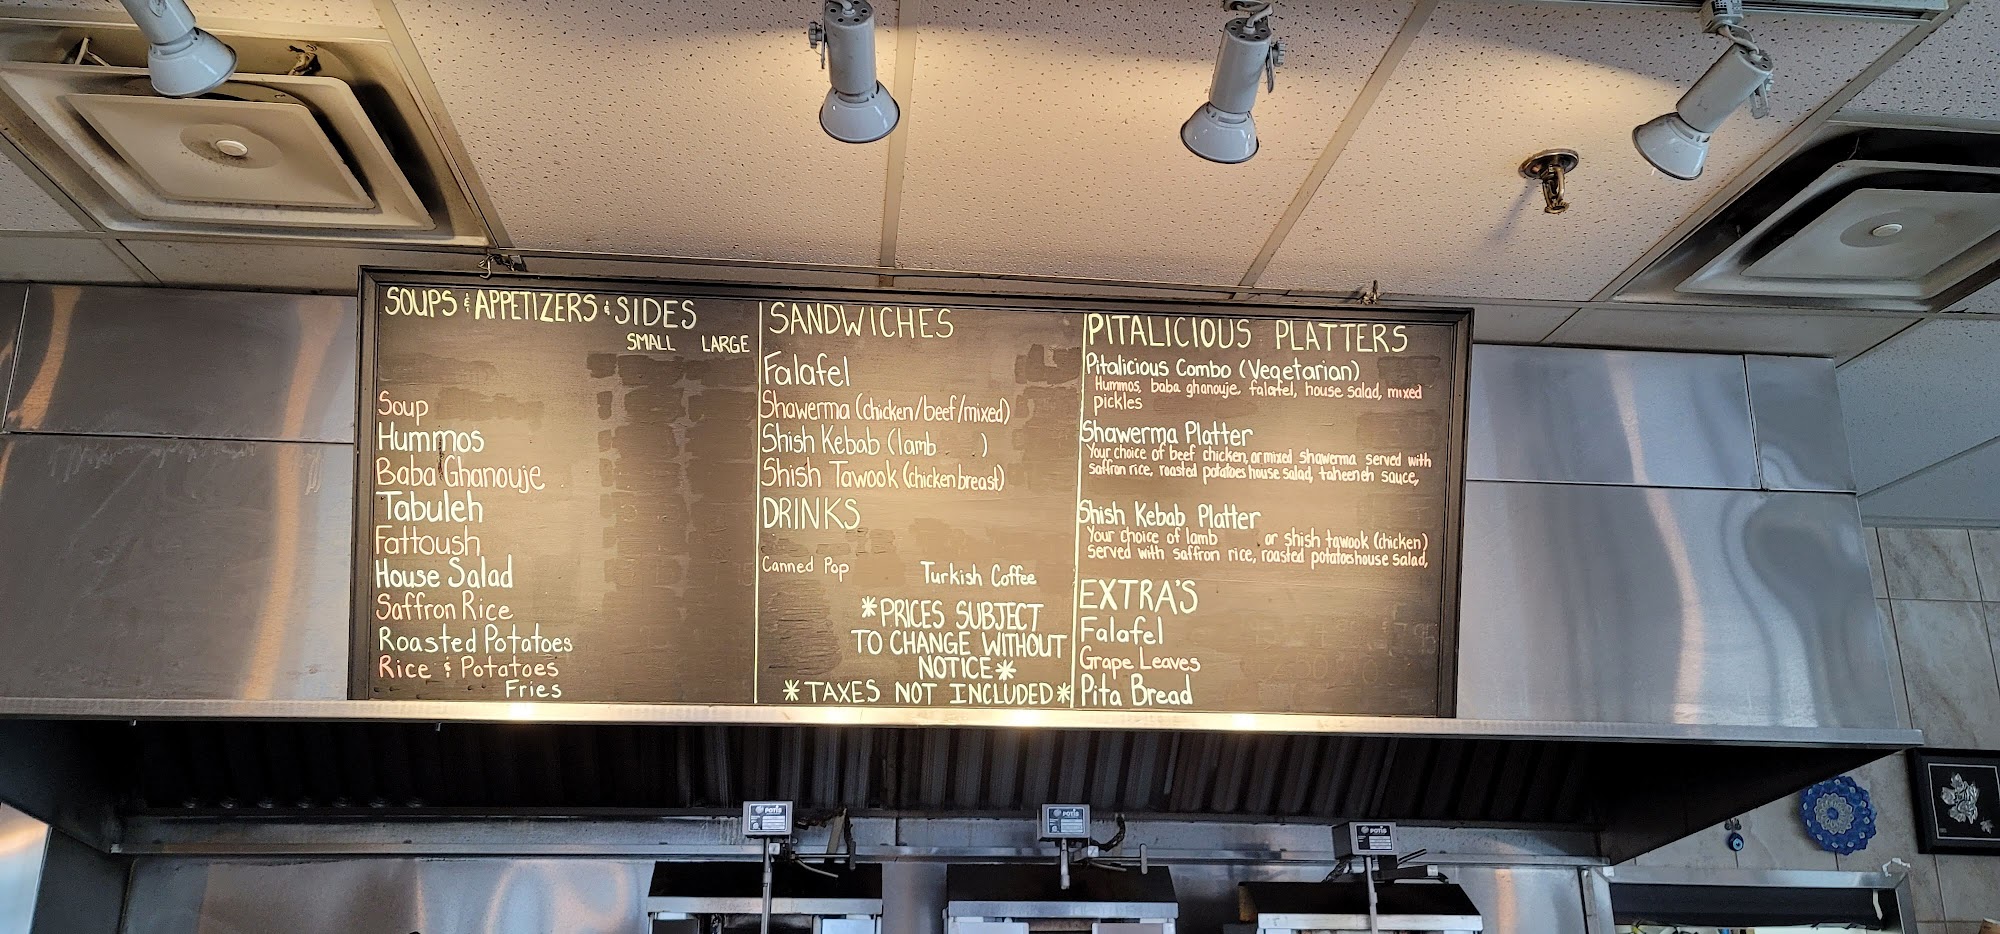 SOUPS & APPETIZERS & SIDES
SMALL LARGE
Soup
Hummos
Baba Ghanouje
Tabuleh
Fattoush
House Salad
Saffron Rice
Roasted Potatoes
Rice & Potatoes
Fries
SANDWICHES
Falafel
Shawerma (chicken/beef/mixed)
Shish Kebab (lamb )
Shish Tawook (chicken breast)
DRINKS
Canned Pop
Turkish Coffee
*PRICES SUBJECT
TO CHANGE WITHOUT
NOTICE*
*TAXES NOT INCLUDED*
PITALICIOUS PLATTERS
Pitalicious Combo (Vegetarian)
Hummos, baba ghanouje, falafel, house salad, mixed
pickles
Shawerma Platter
Your choice of beef chicken, or mixed shawerma served with
saffron rice, roasted potatoes house salad, taheeneh sauce,
Shish Kebab Platter
Your choice of lamb or shish tawook (chicken)
served with saffron rice, roasted potatoes house salad,
EXTRA'S
Falafel
Grape Leaves
Pita Bread
POTIS
POTIS
POTIS